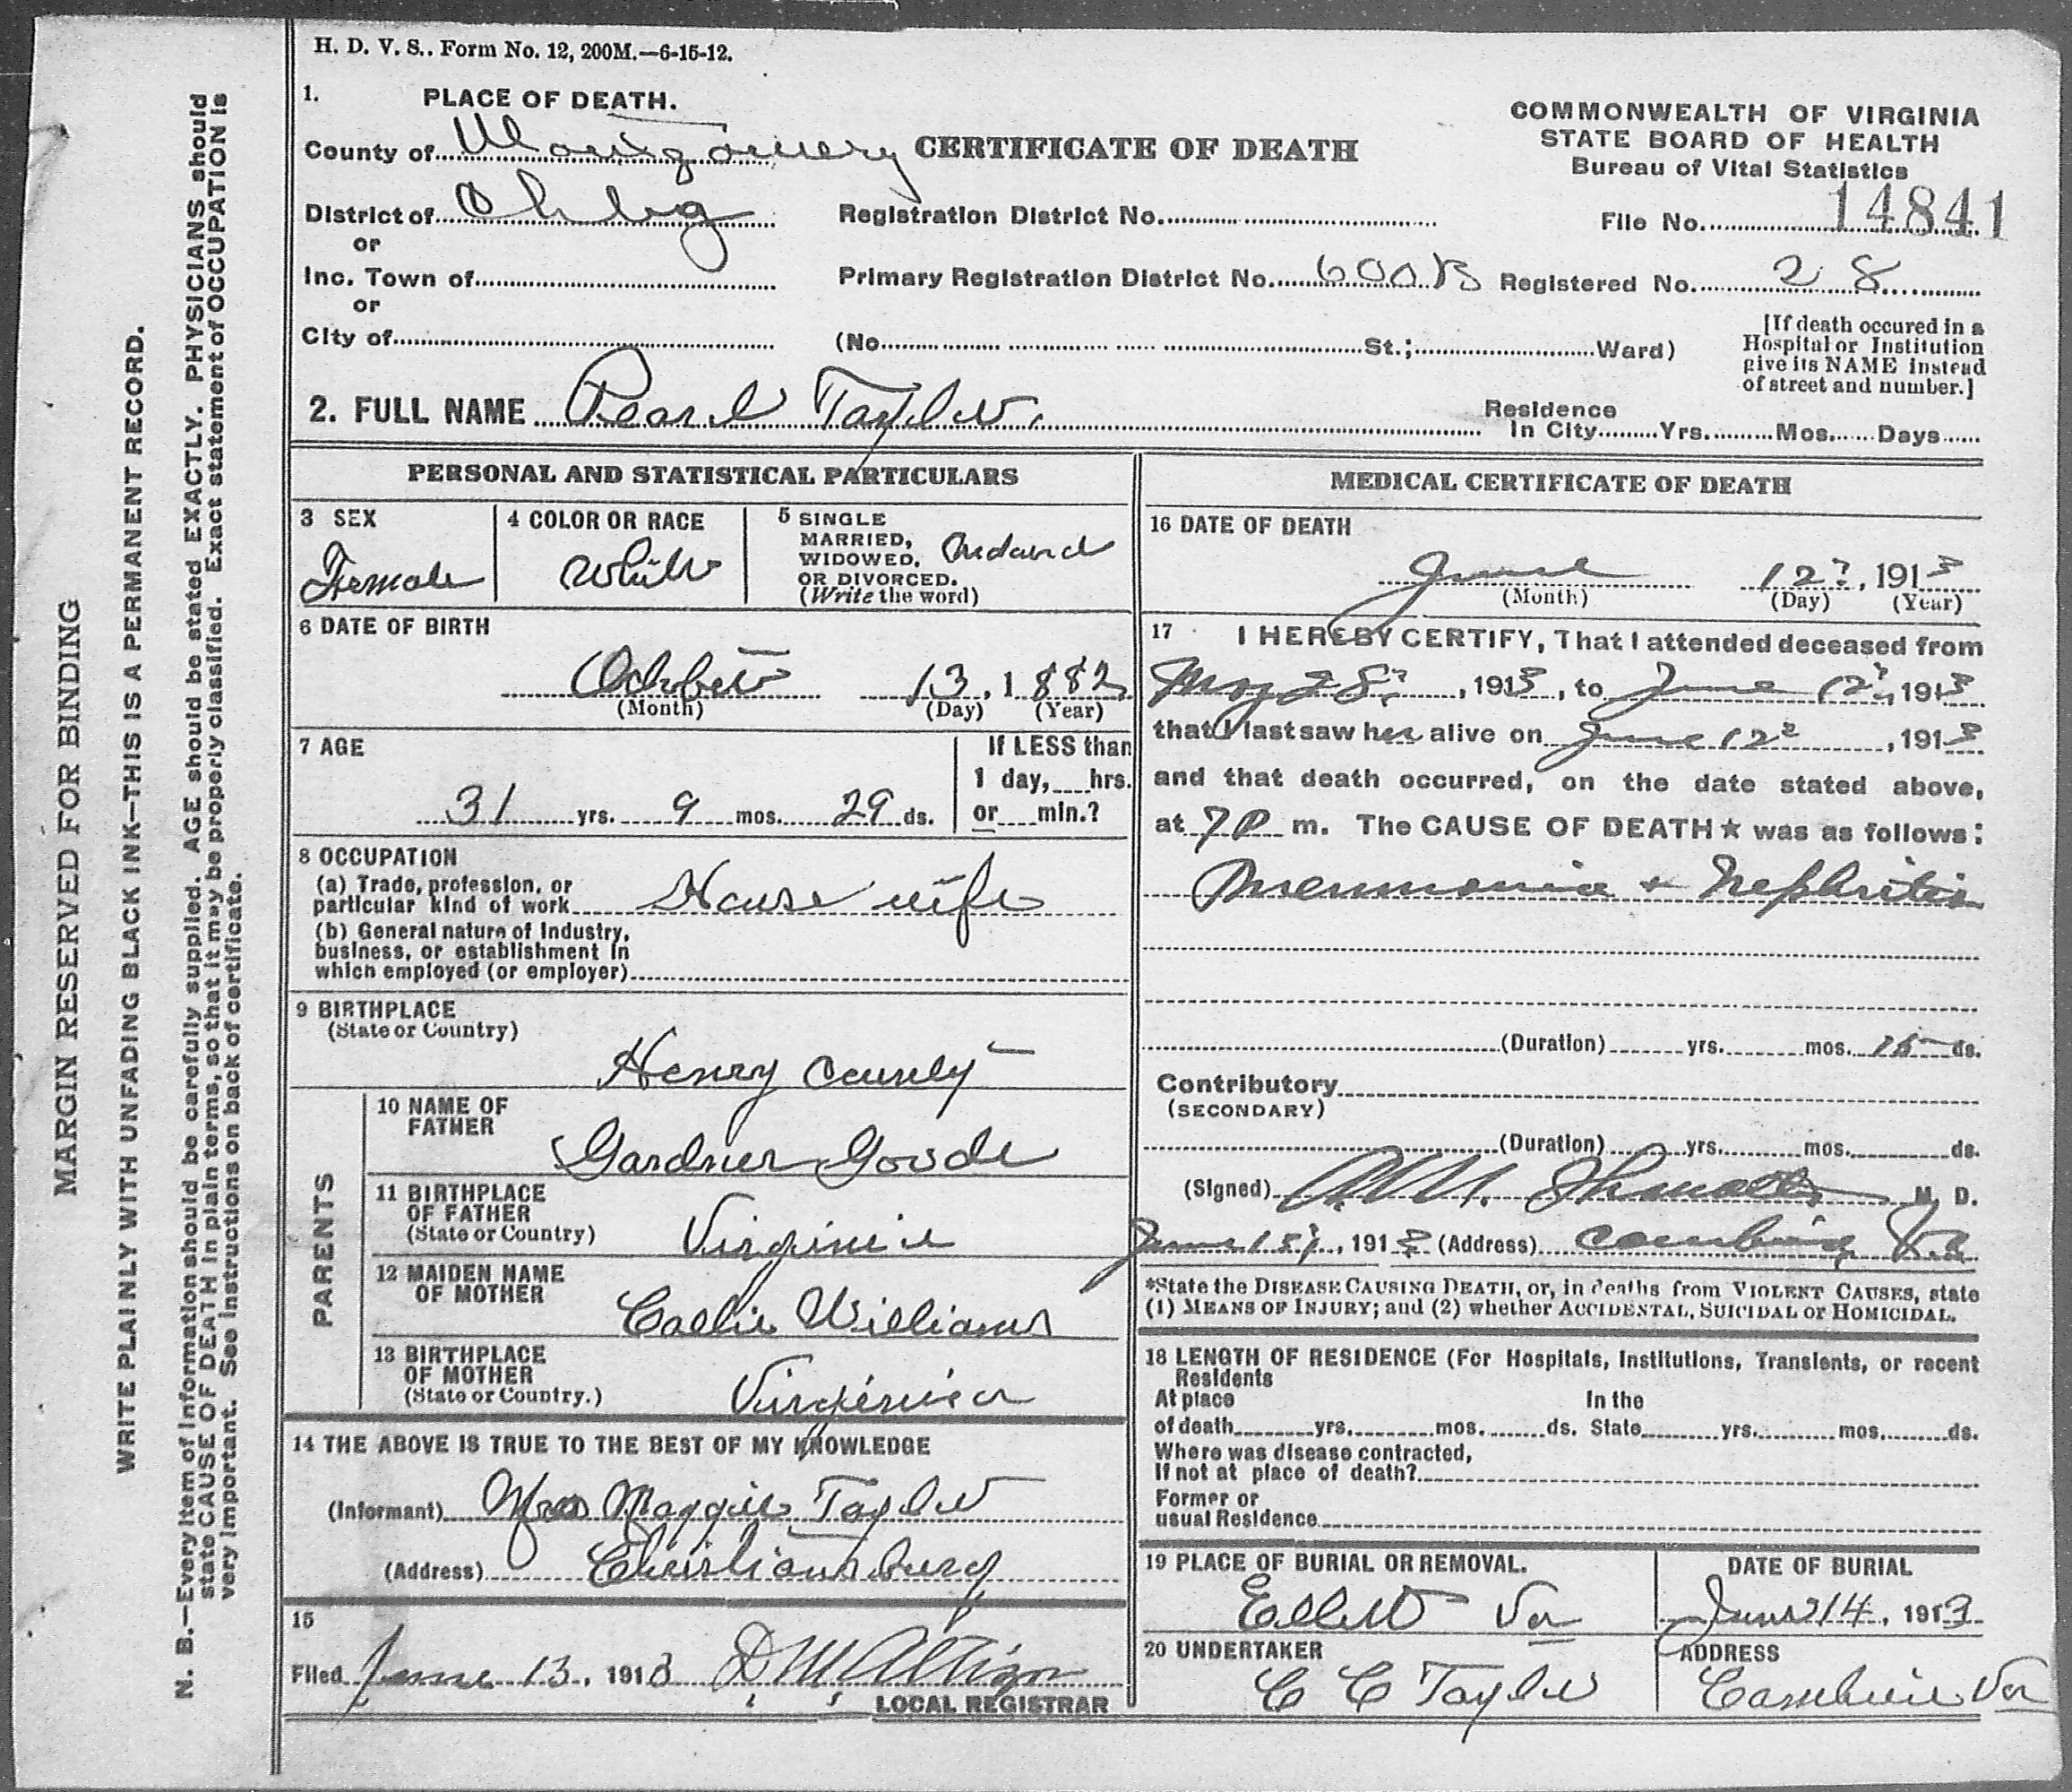 H. D. V. S.. Form No. 12, 200M.—6-15-12.
1. PLACE OF DEATH.
COMMONWEALTH OF VIRGINIA
STATE BOARD OF HEALTH
Bureau of Vital Statistics
County of Montgomery CERTIFICATE OF DEATH
District of Chbg Registration District No. File No. 14841
or
Inc. Town of Primary Registration District No. 600B Registered No. 28
or
City of (No. St.; Ward)
[If death occured in a
Hospital or Institution
give its NAME instead
of street and number.]
2. FULL NAME Pearl Taylor.
Residence
In City Yrs. Mos. Days
PERSONAL AND STATISTICAL PARTICULARS
3 SEX
Female
4 COLOR OR RACE
White
5 SINGLE
MARRIED,
WIDOWED,
OR DIVORCED.
(Write the word)
6 DATE OF BIRTH
October 13, 1882
(Month) (Day) (Year)
7 AGE
31 yrs. 9 mos. 29 ds.
If LESS than
1 day, hrs.
or min.?
8 OCCUPATION
(a) Trade, profession, or
particular kind of work House wife
(b) General nature of Industry,
business, or establishment in
which employed (or employer)
9 BIRTHPLACE
(State or Country)
Henry County
PARENTS
10 NAME OF
FATHER
Gardner Goode
11 BIRTHPLACE
OF FATHER
(State or Country) Virginia
12 MAIDEN NAME
OF MOTHER
Callie Williams
13 BIRTHPLACE
OF MOTHER
(State or Country.) Virginia
14 THE ABOVE IS TRUE TO THE BEST OF MY KNOWLEDGE
(Informant) Mrs Maggie Taylor
(Address) Christiansburg
15
Filed June 13, 1913 D M Allison
LOCAL REGISTRAR
MEDICAL CERTIFICATE OF DEATH
16 DATE OF DEATH
June 12, 1913
(Month) (Day) (Year)
17 I HEREBY CERTIFY, That I attended deceased from
May 28, 1913, to June 12, 1913
that I last saw her alive on June 12, 1913
and that death occurred, on the date stated above,
at 7 P m. The CAUSE OF DEATH★ was as follows:
Pneumonia + Nephritis
(Duration) yrs. mos. 15 ds.
Contributory
(SECONDARY)
(Duration) yrs. mos. ds.
(Signed) M. D.
June, 1913 (Address) Cambria Va
*State the DISEASE CAUSING DEATH, or, in deaths from VIOLENT CAUSES, state
(1) MEANS OF INJURY; and (2) whether ACCIDENTAL, SUICIDAL or HOMICIDAL.
18 LENGTH OF RESIDENCE (For Hospitals, Institutions, Transients, or recent
Residents
At place In the
of death yrs. mos. ds. State yrs. mos. ds.
Where was disease contracted,
If not at place of death?
Former or
usual Residence
19 PLACE OF BURIAL OR REMOVAL.
Ellett Va
DATE OF BURIAL
June 14, 1913
20 UNDERTAKER
C C Taylor
ADDRESS
Cambria Va
MARGIN RESERVED FOR BINDING
WRITE PLAINLY WITH UNFADING BLACK INK—THIS IS A PERMANENT RECORD.
N. B.—Every item of information should be carefully supplied. AGE should be stated EXACTLY. PHYSICIANS should
state CAUSE OF DEATH in plain terms, so that it may be properly classified. Exact statement of OCCUPATION is
very important. See instructions on back of certificate.